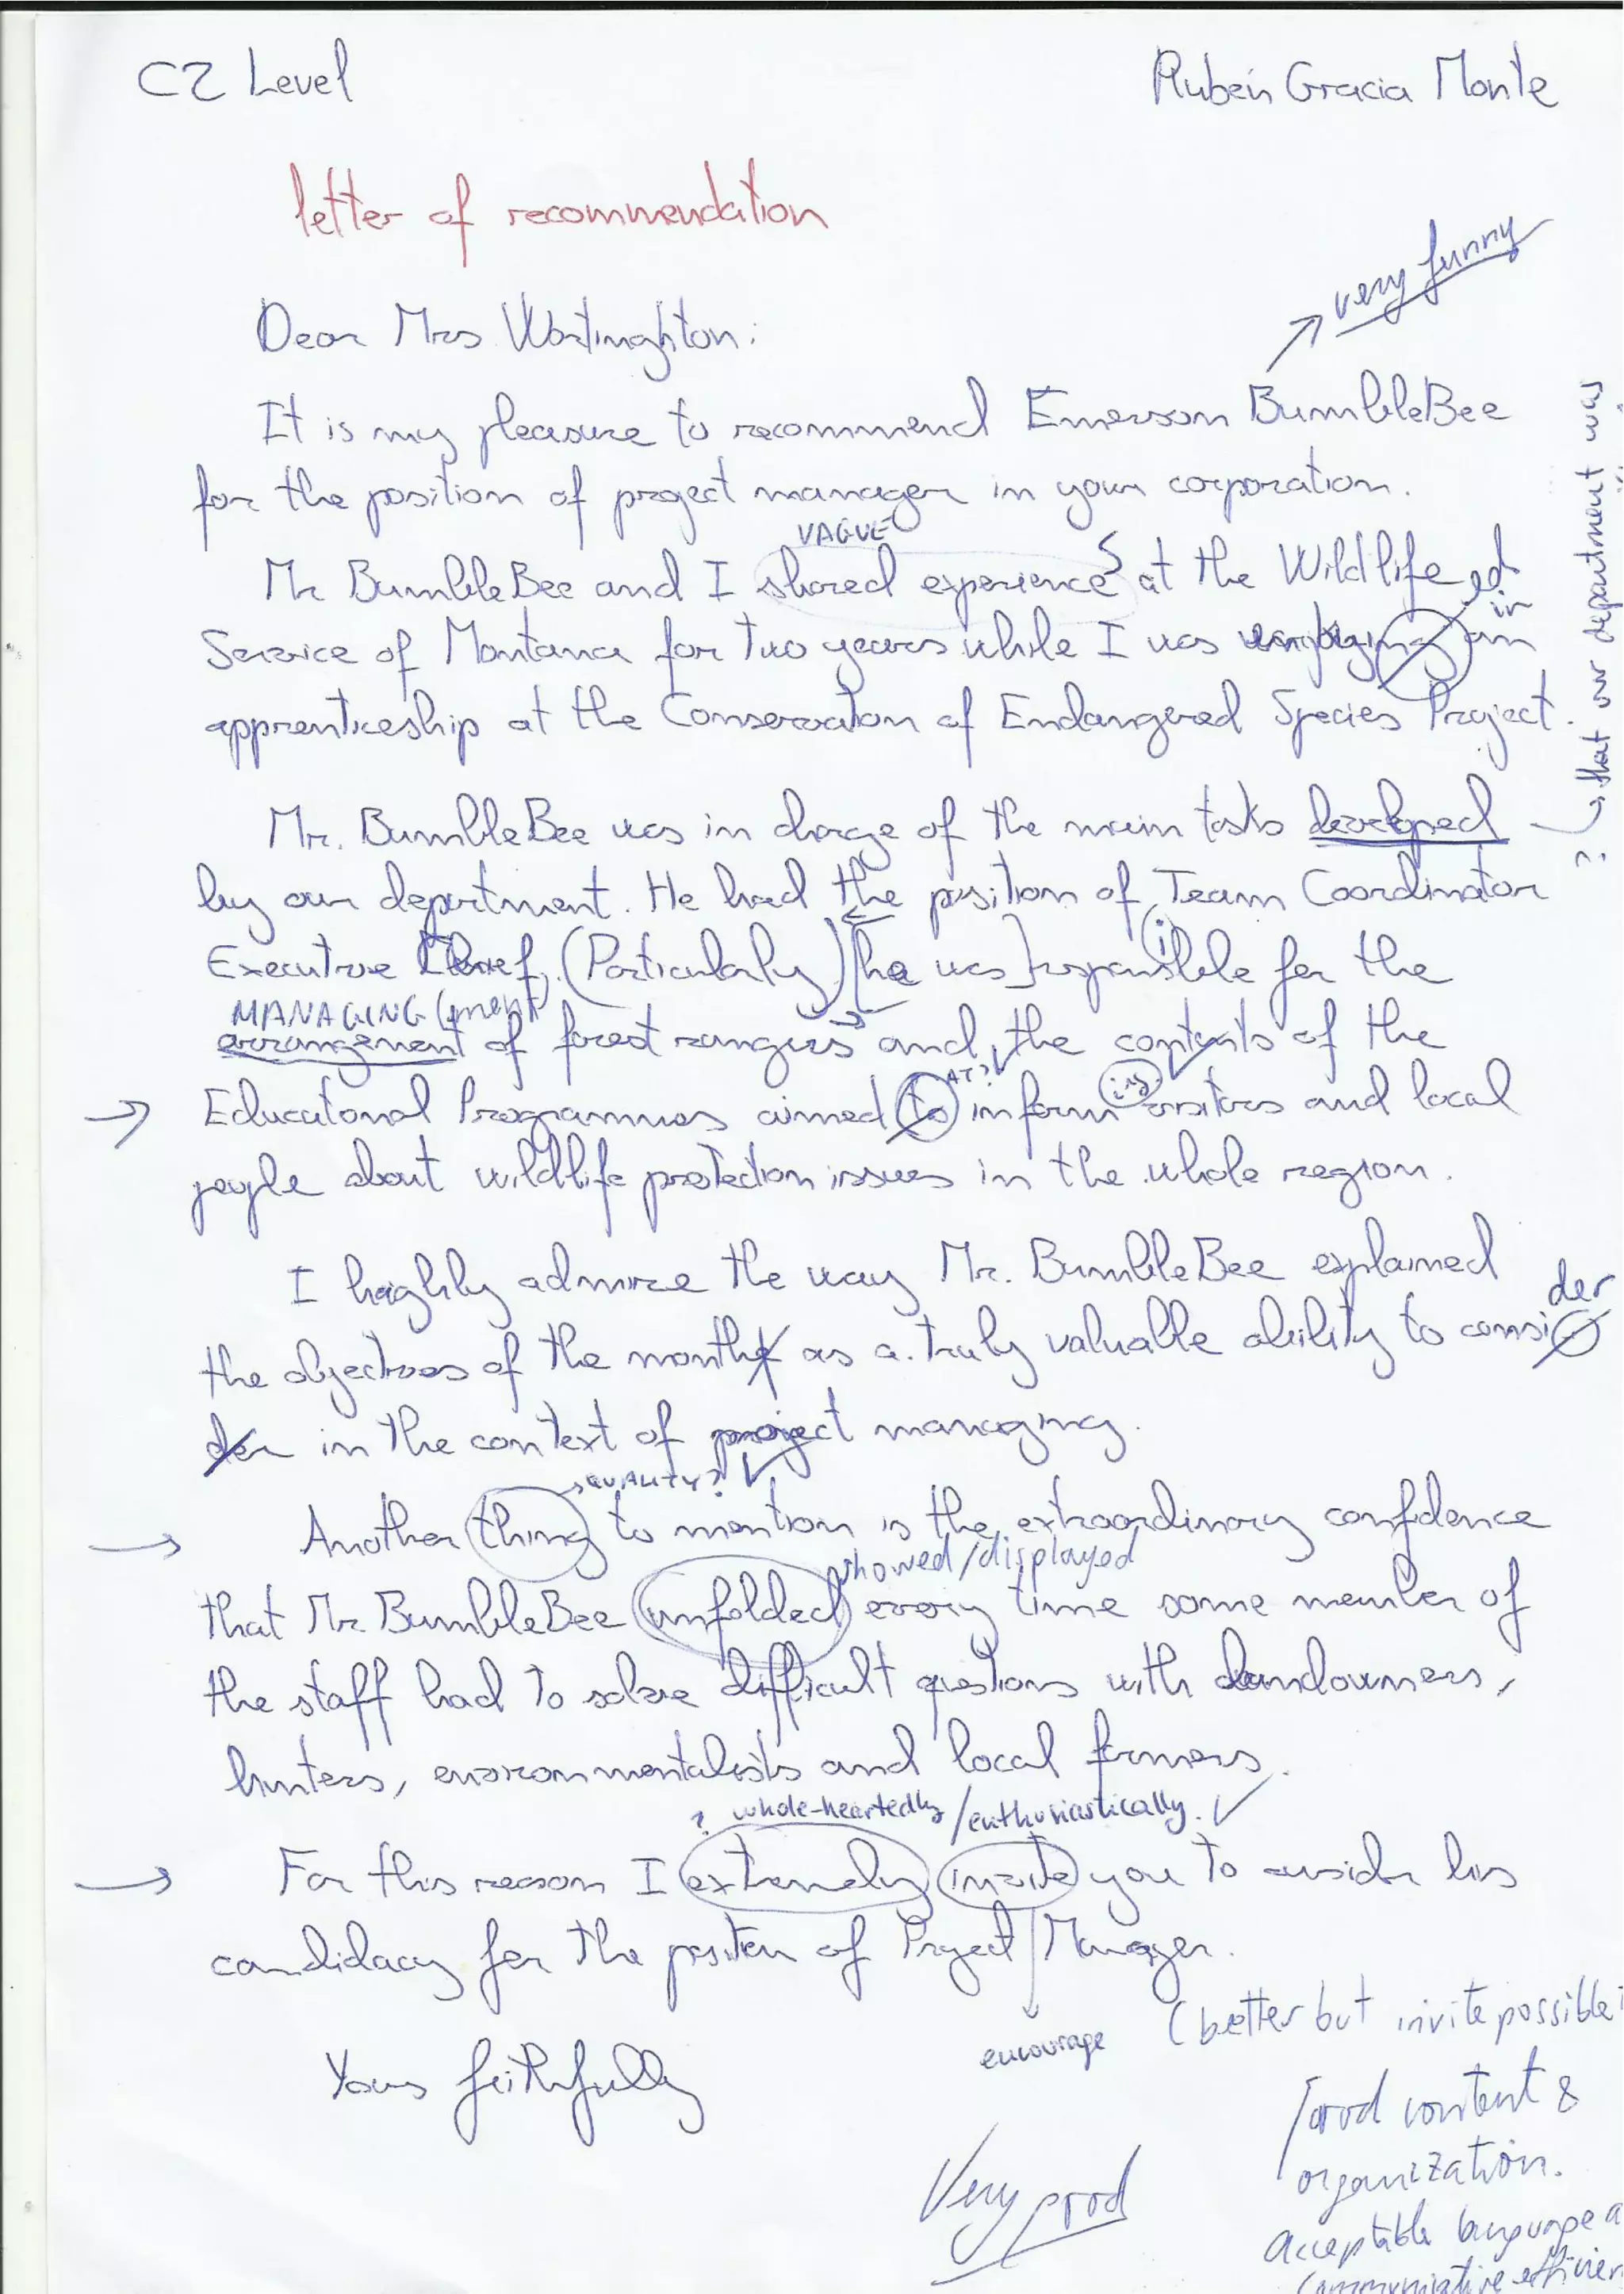 C2 Level
Rubén Gracia Monte
letter of recommendation
very funny
Dear Mrs Wortinghton:
It is my pleasure to recommend Emerson BumbleBee
for the position of project manager in your corporation.
VAGUE
Mr BumbleBee and I shared experience s at the Wildlife ed
in
Service of Montana for two years while I was employing an
apprenticeship at the Conservation of Endangered Species Project.
Mr. BumbleBee was in charge of the main tasks developed
? that our department was
by our department. He had the position of Team Coordinator
Executive Chief. (Particularly) [he was] responsible for the
(i)
MANAGING (ment)
arrangement of forest rangers and the contents of the
AT? ing
Educational Programmes aimed to inform visitors and local
people about wildlife protection issues in the whole region.
I highly admire the way Mr. BumbleBee explained
der
the objectives of the month as a truly valuable ability to consi
der in the context of project managing.
QUALITY?
Another thing to mention is the extraordinary confidence
showed/displayed
that Mr. BumbleBee unfolded every time some member of
the staff had to solve difficult questions with landowners,
hunters, environmentalists and local farmers.
? whole-heartedly/enthusiastically.
For this reason I extremely invite you to consider his
candidacy for the position of Project Manager.
encourage (better but invite possible
Yours faithfully
Very good
Good content &
organization.
acceptable language a
communicative